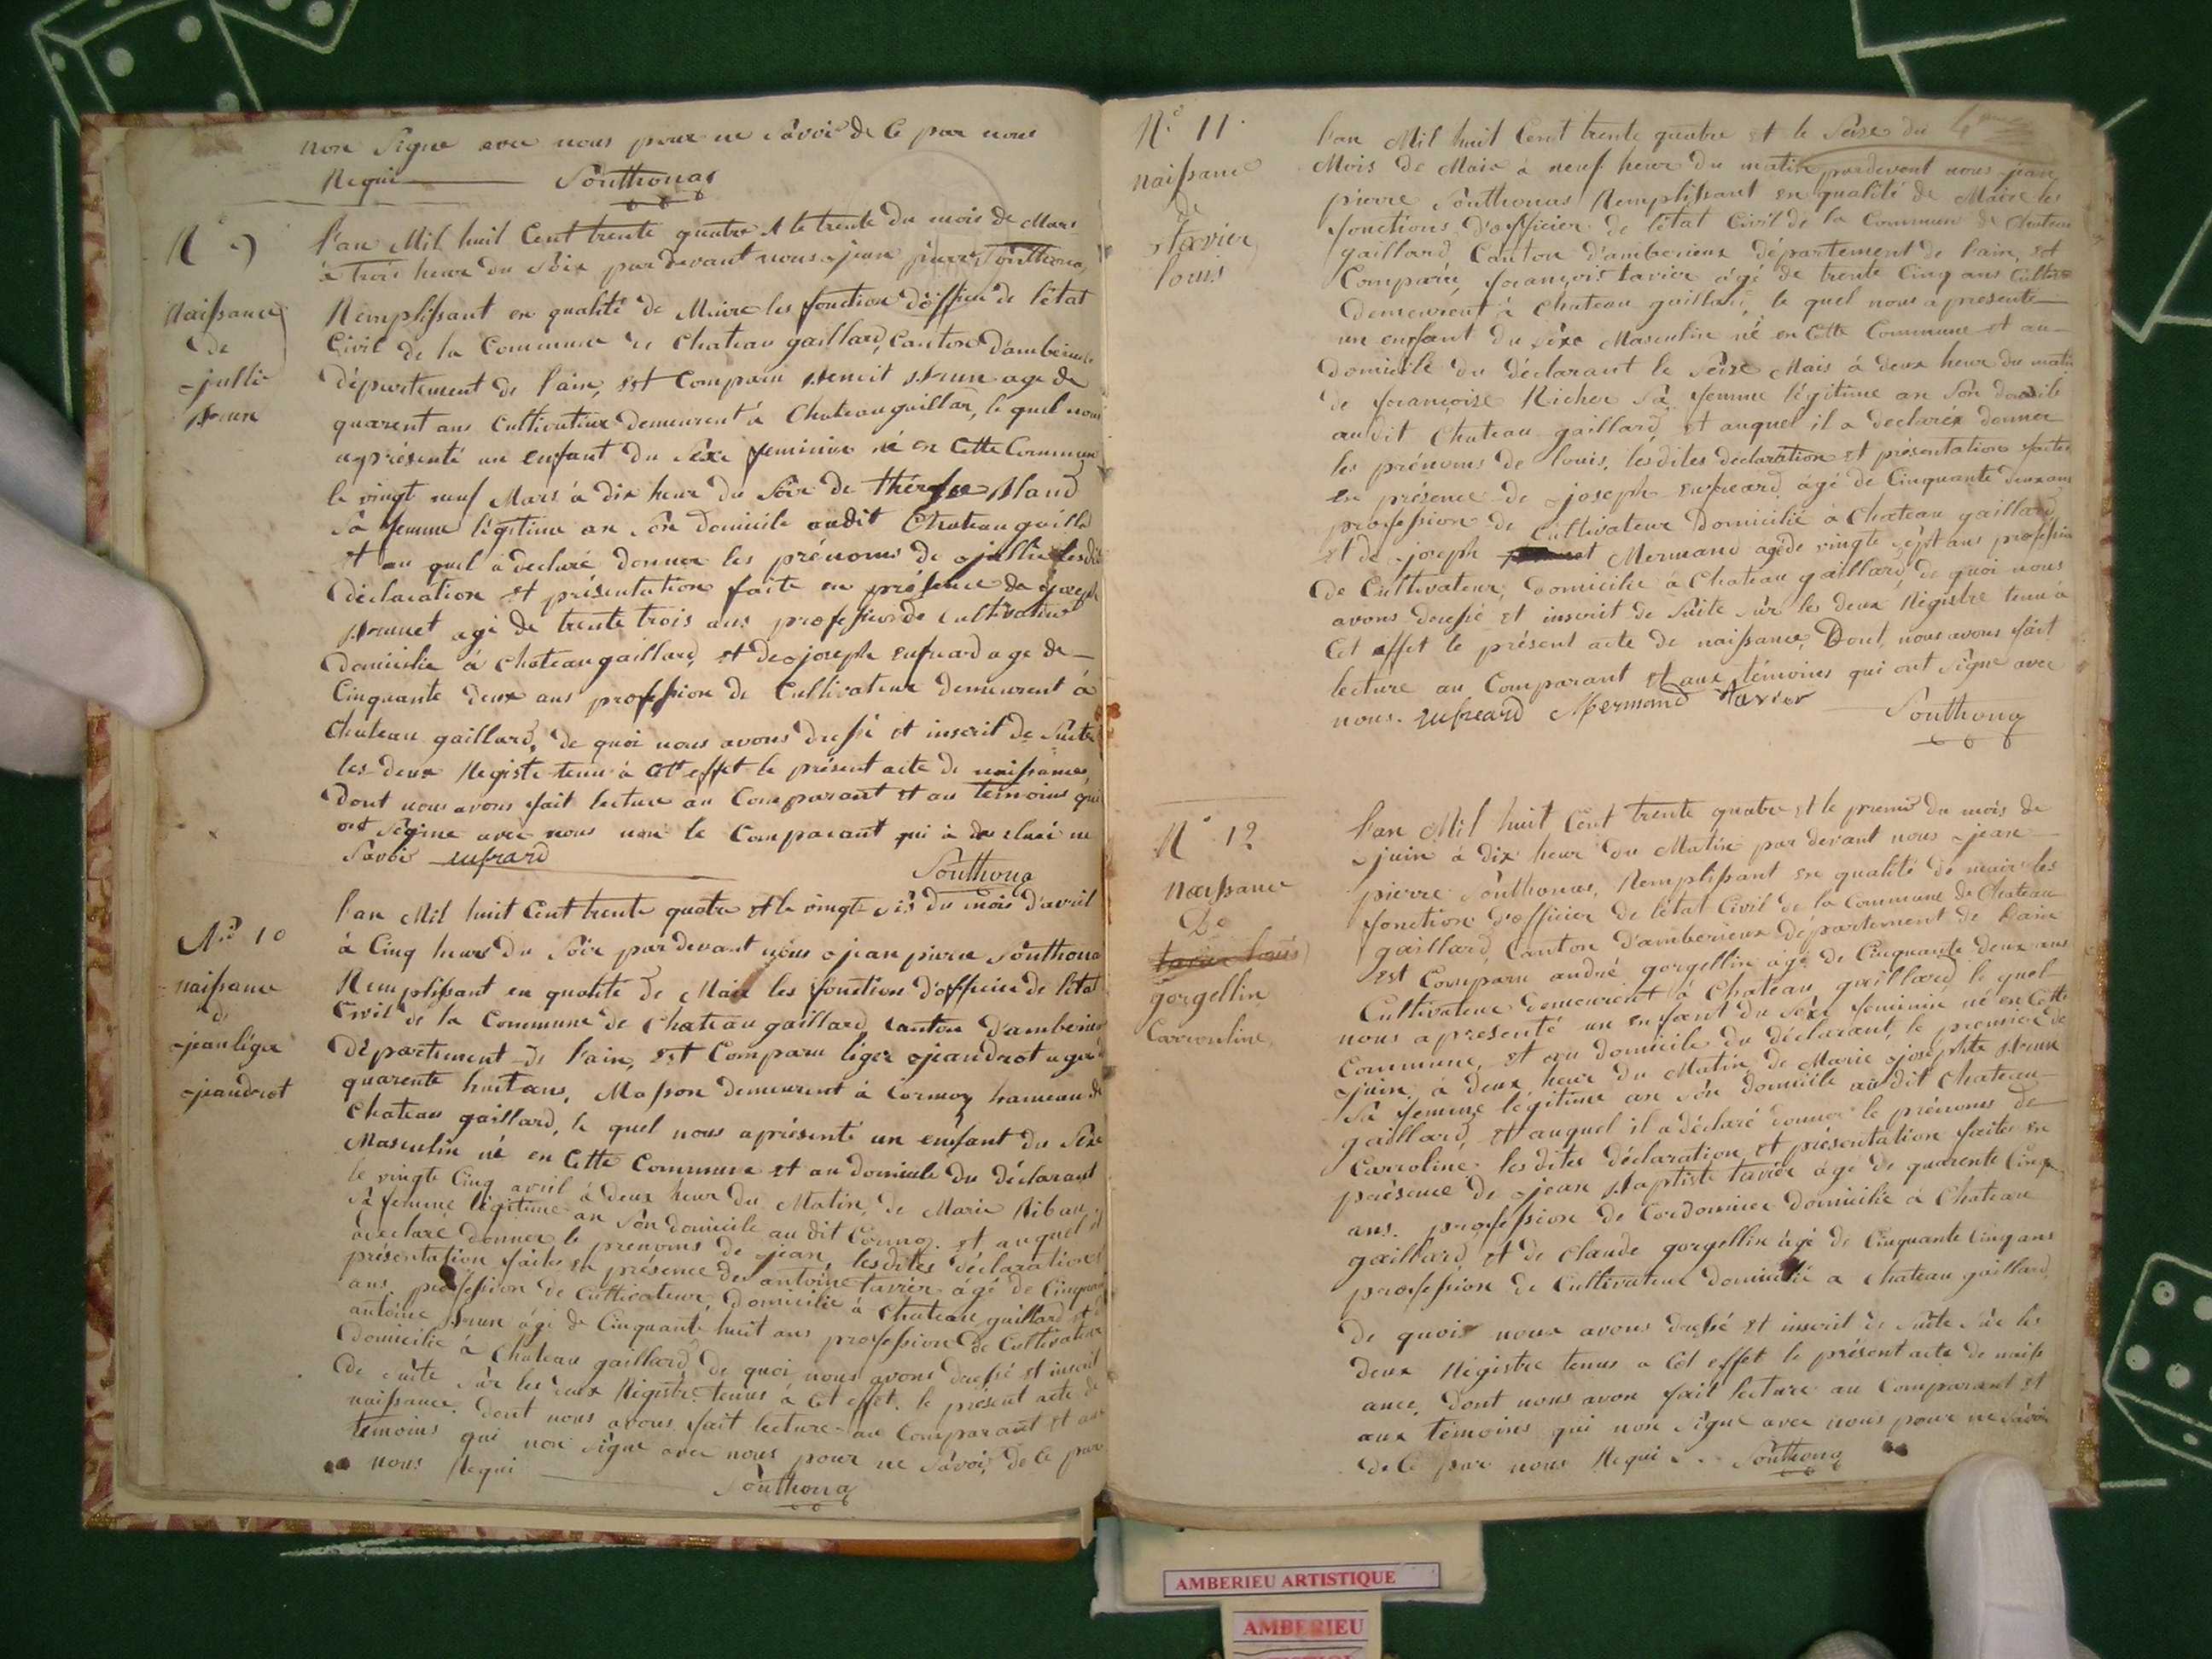 non signé avec nous pour ne savoir de ce par nous
Requi Southonas
N° 9
Naissance
de
jullie
Brun
l'an Mil huit Cent trente quatre et le trente du mois de Mars
à trois heur du soir par devant nous jean pierre Southonas
Remplissant en qualité de Maire les fonction d'officier de l'état
Civil de la Commune de Chateau gaillard, Canton d'amberieux
département de l'ain, est Comparu benoit Brun age de
quarent ans Cultivateur demeurent à Chateau gaillar, le quel nous
apresenté un enfant du Sexe feminin né en Cette Commune
le vingt neuf Mars à dix heur du Soir de thérese Bland
Sa femme légitime an Son domicile audit Chateau gailld
et au quel a declaré donner les prénoms de jullie lesdite
déclaration et présentation faite en présence de joseph
Brunet agé de trente trois ans profession de cultivateur
domicilie à Chateau gaillard, et de joseph eufrard age de
Cinquante deux ans profession de Cultivateur demeurent à
Chateau gaillard, de quoi nous avons dressé et inscrit de Suite
les deux Registe tenu à Cet effet le présent acte de naissance,
Dont nous avons fait lecture au Comparant et au temoins qui
ont Signe avec nous non le Comparant qui à de claré ne
Savoir eufrard
Southona
N° 10
naissance
de
jean léger
jeandrot
l'an Mil huit Cent trente quatre et le vingt sis du mois d'avril
à Cinq heurs du Soir par devant nous jean pierre Southona
Remplissant en qualité de Maire les fonction d'officier de l'état
Civil de la Commune de Chateau gaillard, canton d'amberieux
Département de l'ain, est Comparu léger jeandrot agé de
quarente huit ans, Masson demeurent à Cormoz hameau de
Chateau gaillard, le quel nous apresenté un enfant du Sexe
Masculin né en Cette Commune et au domicile du déclarant
le vingte Cinq avril à deux heur du Matin, de Marie Riban
Sa femme légitime an Son domicile au dit Cormoz. et auquel il
adeclaré donner le prenoms de jean, lesdites déclaration et
présentation faites en présence de antoine tavier âgé de Cinquante
ans profession de Cultivateur, domicilié à Chateau gaillard et d
antoine Brun âgé de Cinquante huit ans profession de Cultivateur
Domicilié à Chateau gaillard, de quoi nous avons dressé et inscrit
de suite Sur les deux Registre tenus à Cet effet. le présent acte de
naissance. dont nous avons fait lecture au Comparant et aux
témoins qui non signe avec nous pour ne Savoir de Ce par
nous Requi
Southona
N° 11.
naissance
de
tavier
louis
l'an Mil huit Cent trente quatre et le Seize du
Mois de Mais à neuf heur du matin pardevant nous jean
pierre Southonas Remplissant en qualité de Maire les
fonctions d'officier de l'état Civil de la Commune de Chateau
gaillard, Canton d'amberieux département de l'ain, est
Comparu, françois tavier âgé de trente Cinq ans Cultiv
demeurent à Chateau gaillard, le quel nous apresenté
un enfant du sèxe Masculin né en Cette Commune et au
domicile du déclarant le Seize Mais à deux heur du matin
de françoise Richer Sa femme légitime an Son domicile
audit Chateau gaillard, et auquel il a declaréx donner
les prénoms de louis, lesdites déclaration et présentation faites
en présence de joseph eufreard âgé de Cinquante deux ans
profession de Cultivateur Domicilié à Chateau gaillard,
et de joseph Mermand agé de vingte sept ans profession
de Cultivateur, domicilie à Chateau gaillard, de quoi nous
avons dressé et inscrit de Suite Sur les deux Régistre tenu à
Cet effet le présent acte de naissance, Dont nous avons fait
lecture au Comparant et aux témoins qui ont Signe avec
nous. eufreard Mermand tavier Southona
N° 12
naissance
De
tavier louis
gorgellin
Carrouline
l'an Mil huit Cent trente quatre et le premier du mois de
juin à dix heur du Matin par devant nous jean
pierre Southonas, Remplissant en qualité de maire les
fonction d'officier de l'état Civil de la Commune de Chateau
gaillard, Canton d'amberieux département de l'ain
est Comparu andré gorgellin agé de Cinquante deux ans
Cultivateur demeurent à Chateau gaillard, le quel
nous apresenté un enfant du Sexe feminin né en Cette
Commune, et au domicile du déclarant, le premier de
juin à deux heur du Matin de Marie josephte Brun
Sa femme légitime an Son domicile audit Chateau
gaillard, et auquel il a déclaré donner le prénoms de
Carroline lesdites déclaration et présentation faites en
présence de jean Baptiste tavier âgé de quarente Cinq
ans. profession de Cordonnier Domicilié à Chateau
gaillard, et de Claude gorgellin âgé de Cinquante Cinq ans
profession de Cultivateur domicilié a Chateau gaillard,
De quois nous avons dressé et inscrit de Suite Sur les
deux Régistre tenus a Cet effet le présent acte de naiss
ance, Dont nous avon fait lecture au Comparant et
aux témoins qui non Signé avec nous pour ne Savoir
de Ce par nous Requi. Southona
AMBERIEU ARTISTIQUE
AMBERIEU